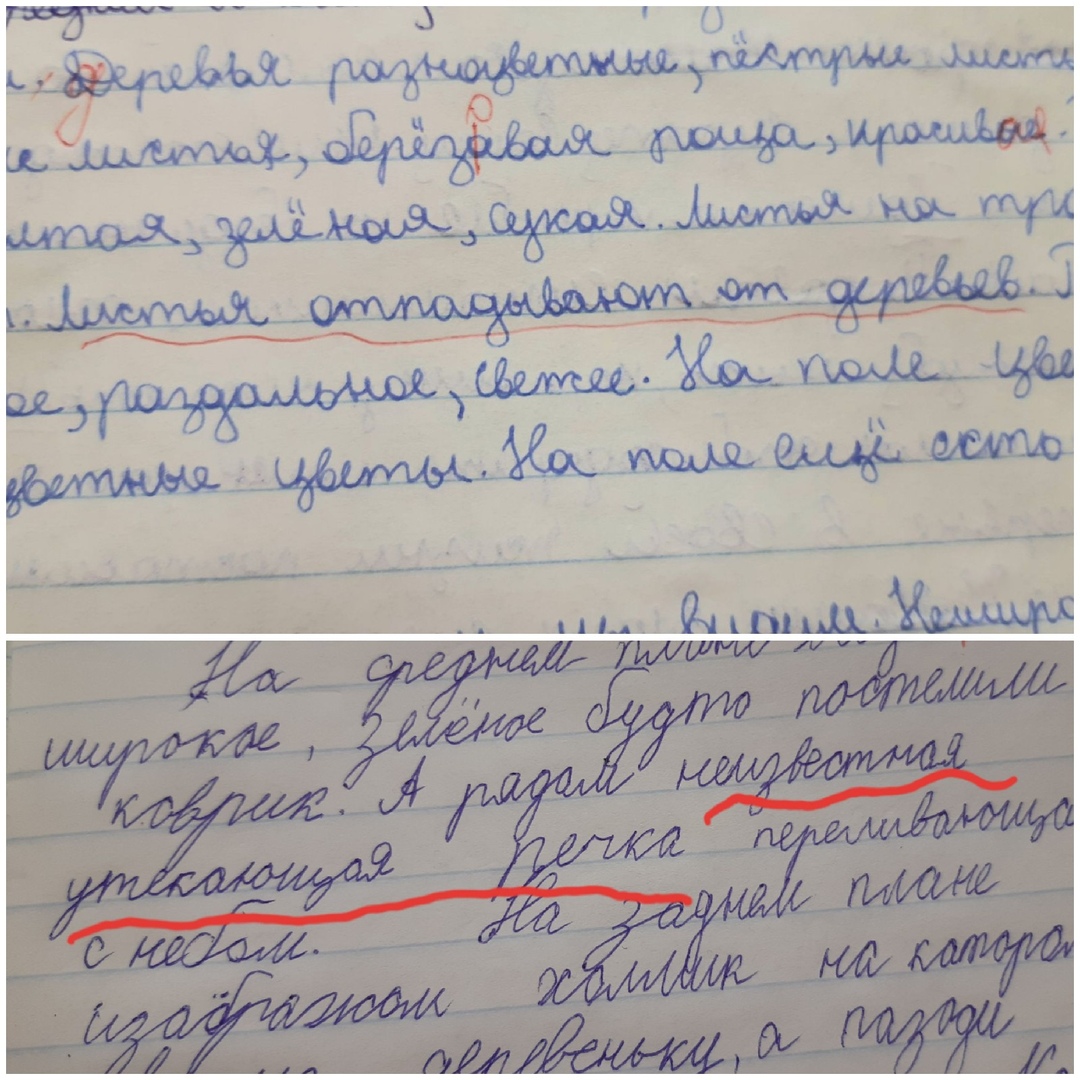 . Деревья разноцветные, пёстрые листь
е листья, берёзавая роща, красивая.
лтая, зелёная, сухая. Листья на тра
. Листья отпадывают от деревьев.
ое, раздальное, свежее. На поле цве
зветные цветы. На поле ещё екто
мы видим. Немиро
На среднем плане
широкое, зелёное будто постелили
коврик. А рядом неизвестная
утекающая речка переливающа
с небом. На заднем плане
изображом холмик на каторо
деревеньку, а пазади